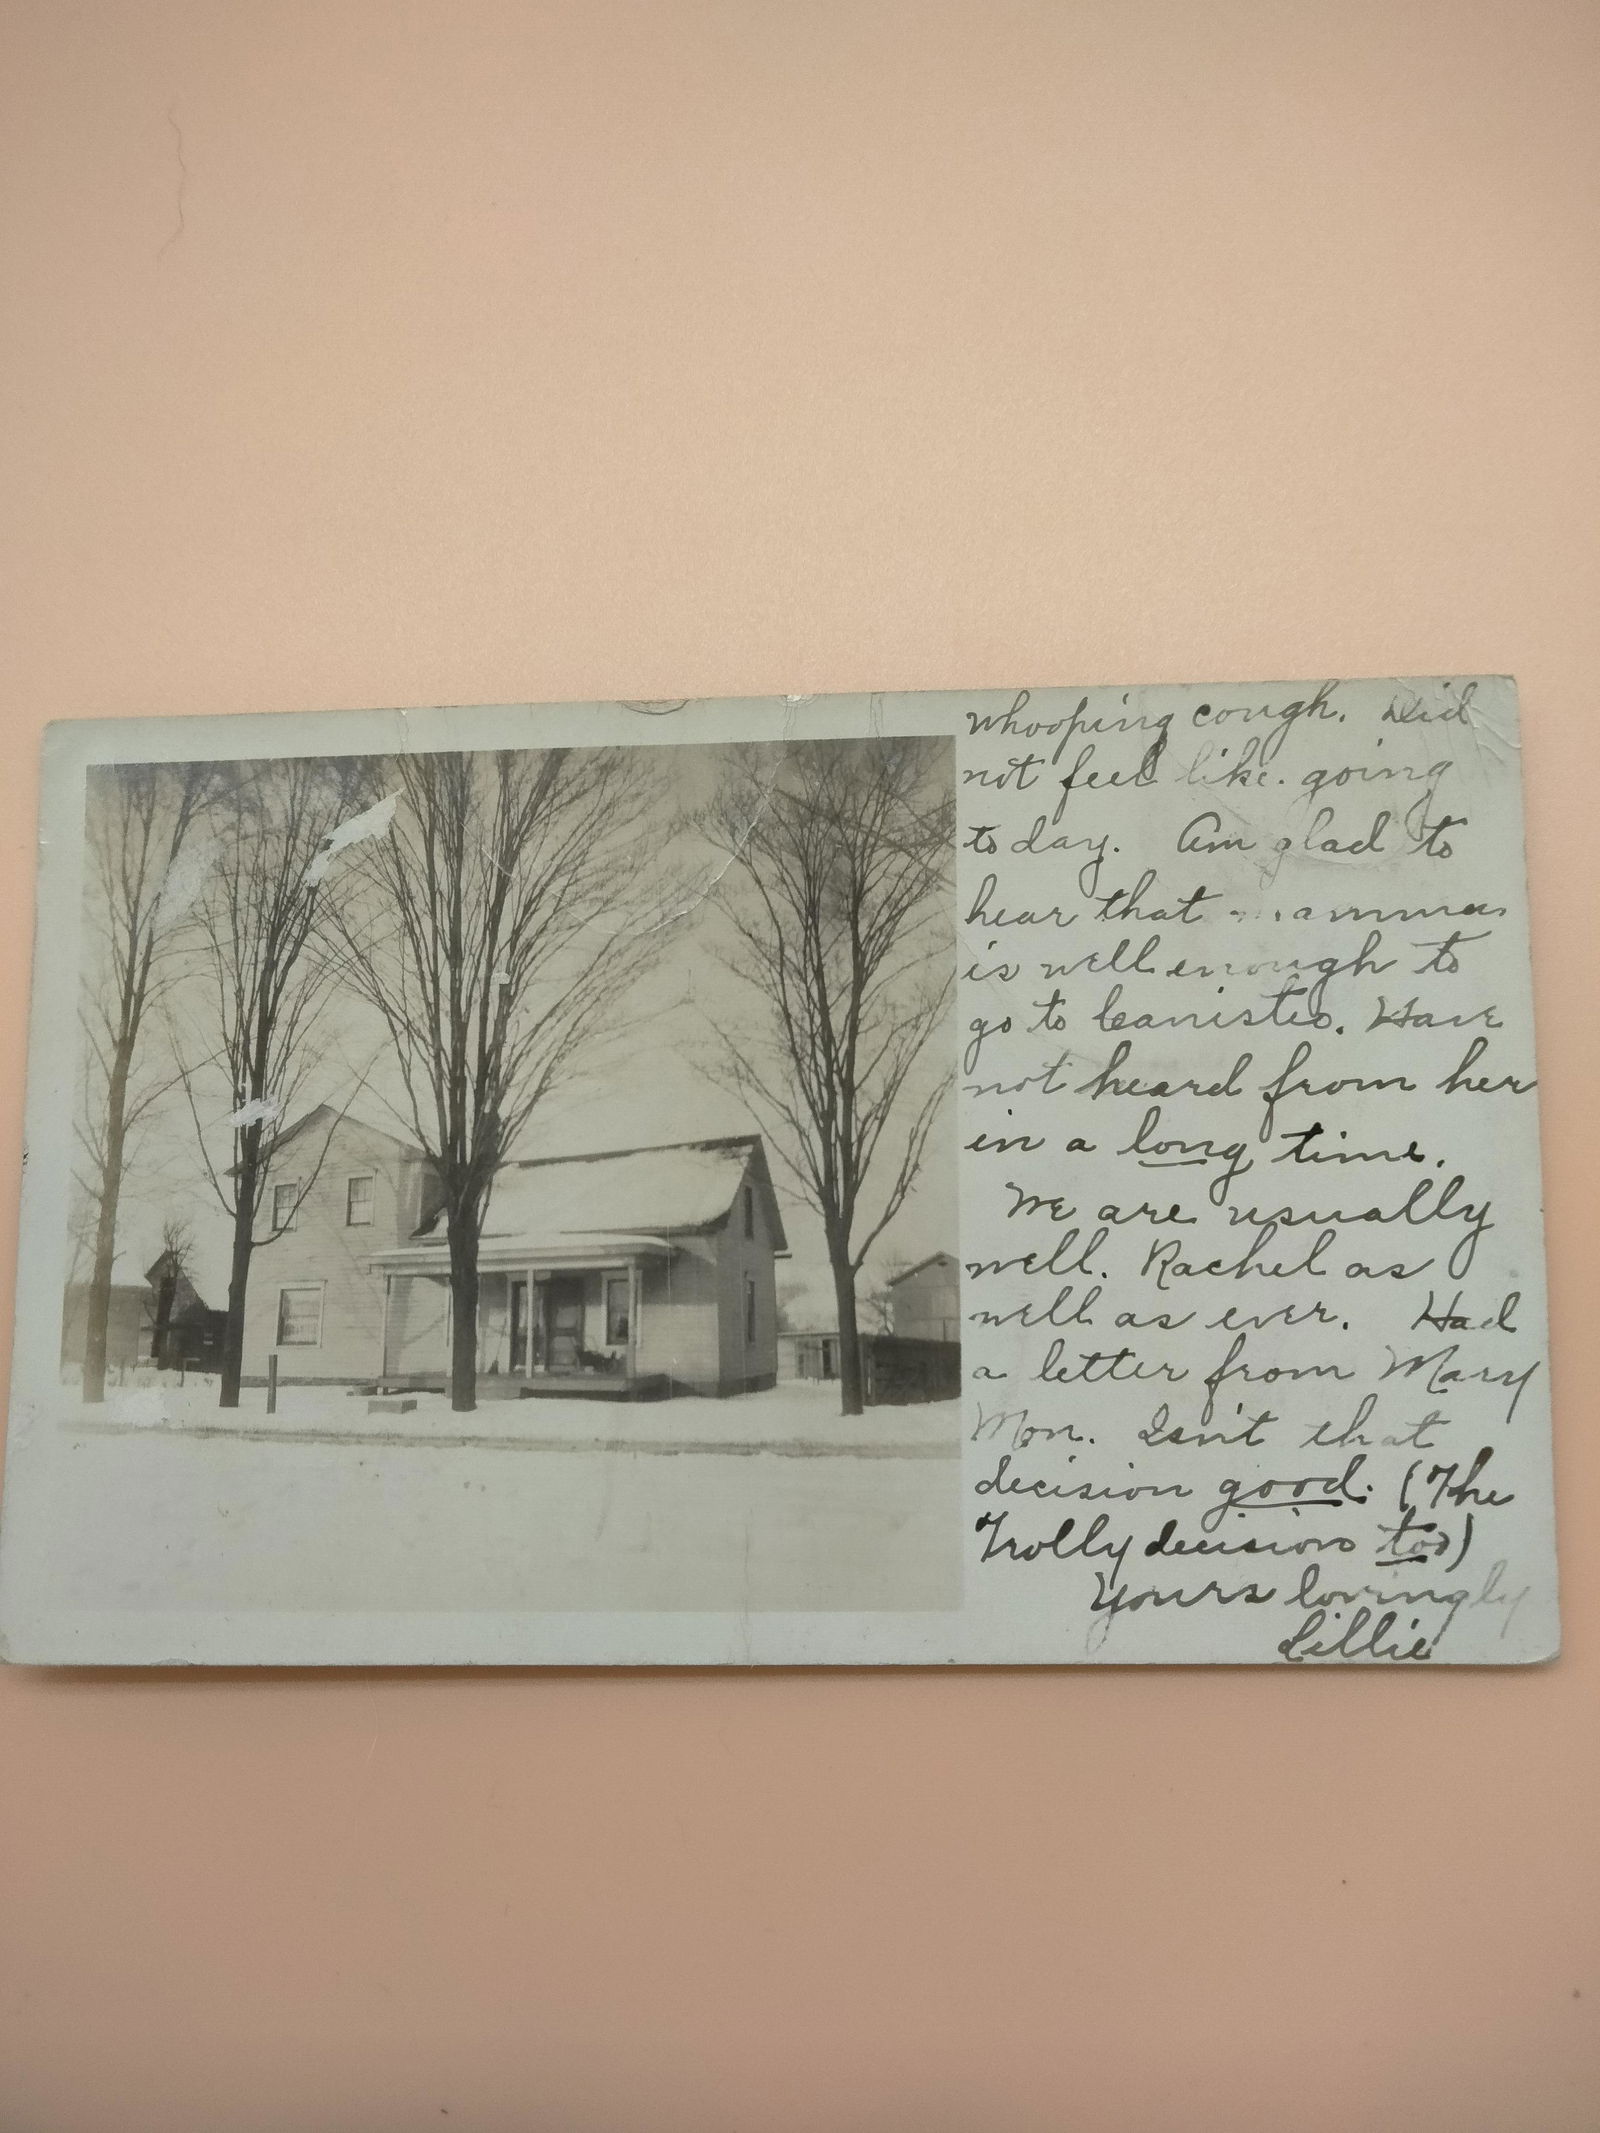 whooping cough. Did
not feel like going
to day. Am glad to
hear that mamma
is well enough to
go to Canisteo. Have
not heard from her
in a long time.
We are usually
well. Rachel as
well as ever. Had
a letter from Mary
Mon. Isn't that
decision good. (The
Trolly decision too)
Yours lovingly
Lillie